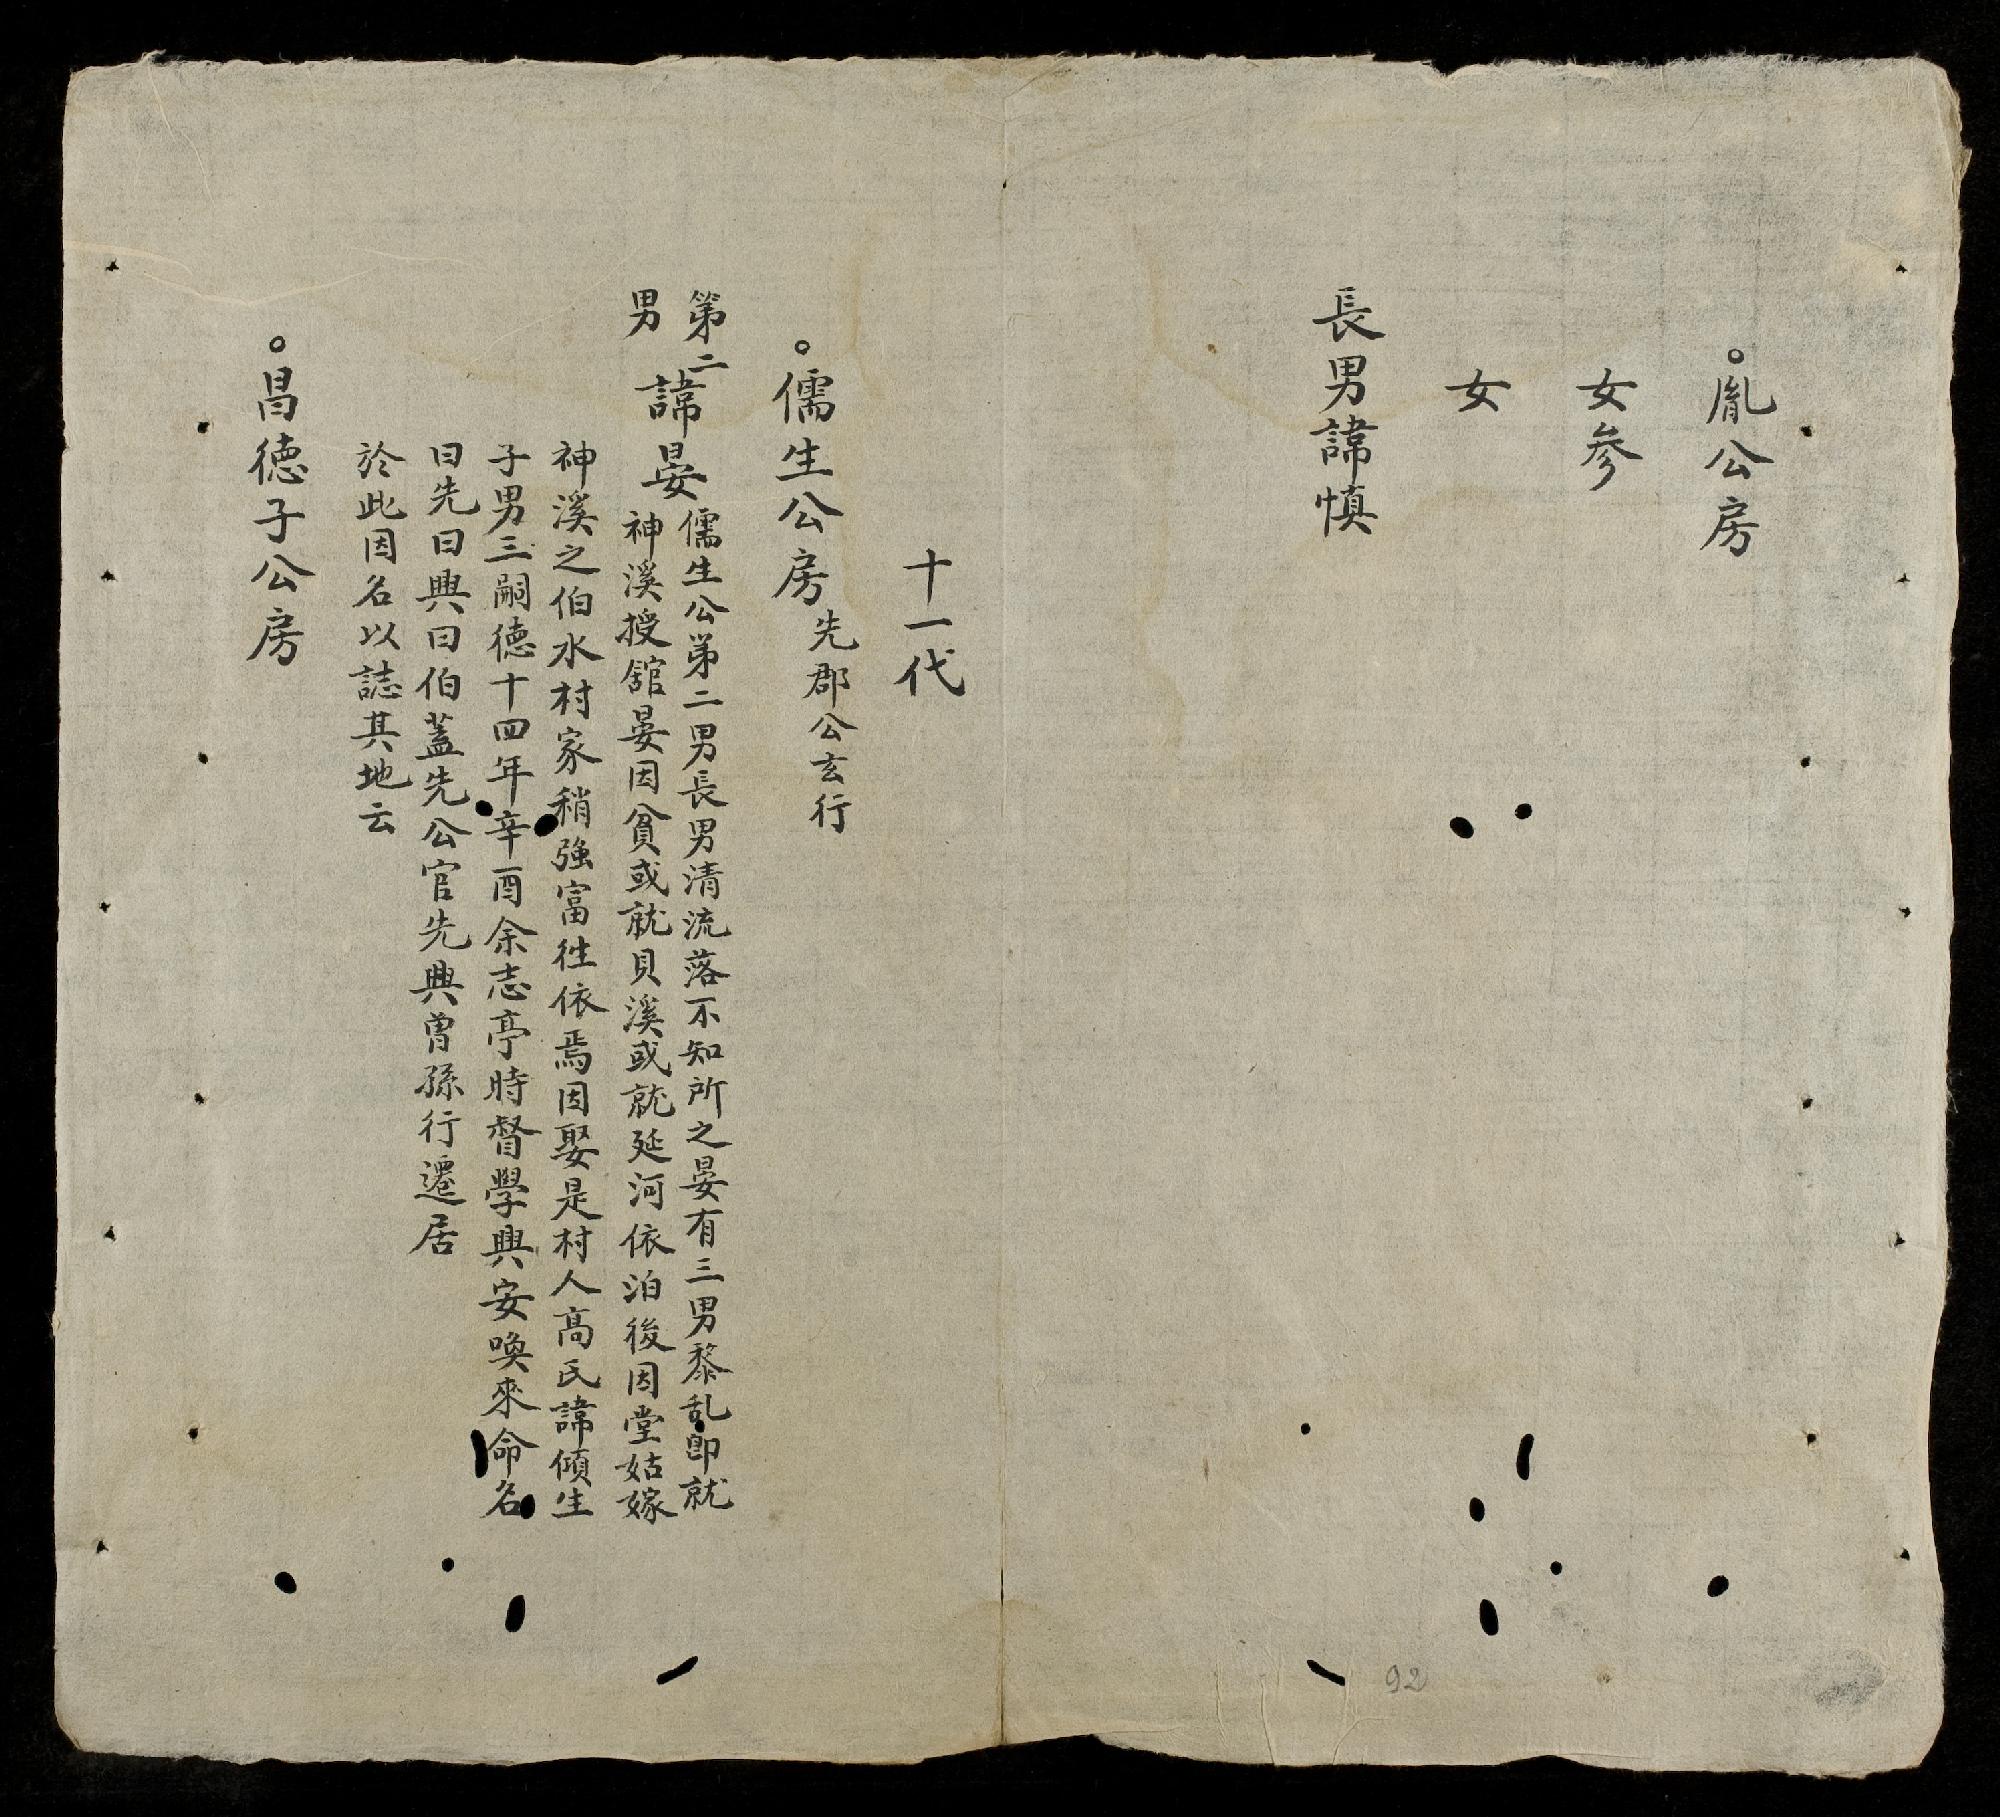 。胤公房
女參
女
長男諱慎
92
十一代
。儒生公房先郡公玄行
第二
男
諱晏
儒生公第二男長男清流落不知所之晏有三男黎乱即就
神溪授舘晏因貧或就貝溪或就延河依泊後因堂姑嫁
神溪之伯水村家稍強富徃依焉因娶是村人高氏諱傾生
子男三嗣德十四年辛酉余志亭時督學興安喚來命名
曰先曰興曰伯蓋先公官先興曾孫行遷居
於此因名以誌其地云
。昌德子公房